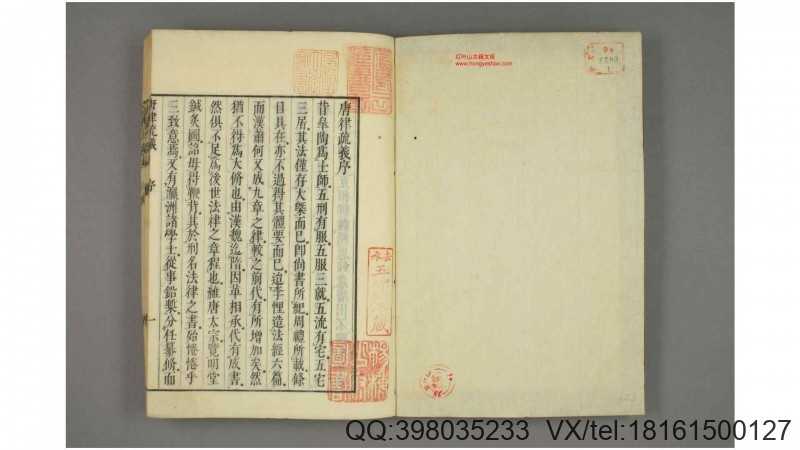 唐律疏義序
昔皐陶爲士師五刑有服五服三就五流有宅五宅
三居其法僅存大槩而已卽尚書所紀周禮所載條
目具在亦不過得其體要而已迨李悝造法經六篇
而漢蕭何又成九章之律較之前代有所增加矣然
猶不得爲大俻也由漢魏迄隋因革相承代有成書
然俱不足爲後世法律之章程也惟唐太宗覽明堂
鍼灸圖詔毋得鞭背其於刑名法律之書殆惓惓乎
三致意焉又有瀛洲諸學士從事鉛槧分任纂脩而
唐律疏義
序
一
红叶山古籍文库
www.hongyeshan.com
QQ:398035233 VX/tel:18161500127